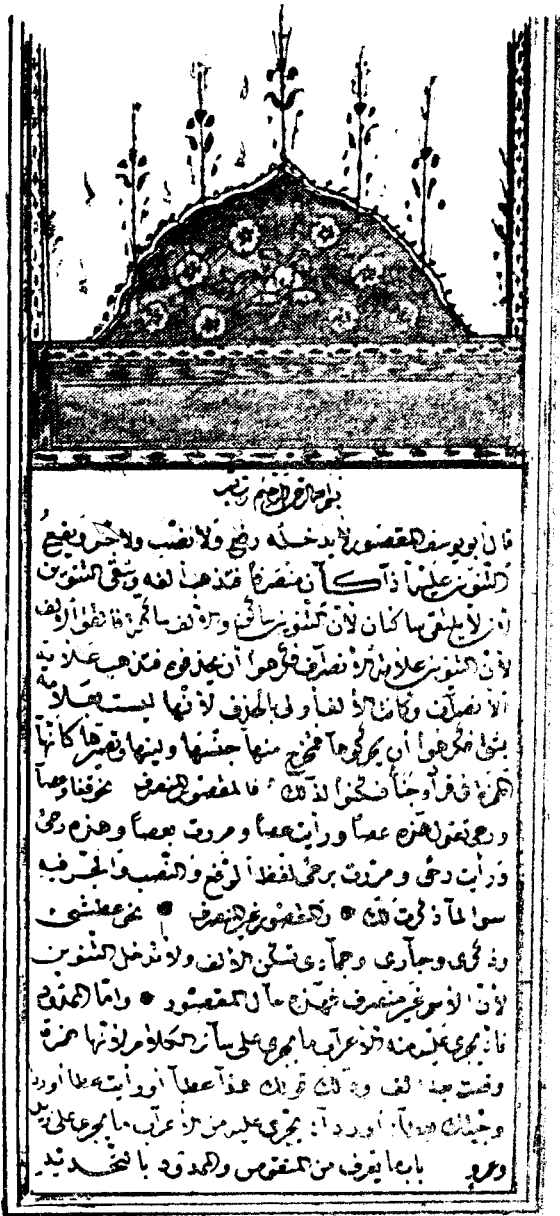 بسم الله الرحمن الرحيم
قال أبو يوسف المقصور لا يدخله رفع ولا نصب ولا جر ويقع
التنوين عليه إذا كان منصرفا فتذهب ألفه ويبقى التنوين
لئن لا يلتقى ساكنان لأن التنوين ساكن والألف ساكنة فالقوا الألف
لأن التنوين علامة الانصراف فكرهوا أن يحذفوه فتذهب علامة
الانصراف وكانت الألف أولى بالحذف لأنها ليست بعلامة
فكرهوا أن يحركوها فتخرج منها جنسها وغيرها كأنها
الهمزة في لذلك فالمقصور المنصرف نحو قفا وعصا
ورحى تقول هذه عصا ورأيت عصا ومررت بعصا وهذه رحى
ورأيت رحى ومررت برحى لفظ الرفع والنصب والجر فيه
سوا لما ذكرت لك والمقصور غير المنصرف نحو عطشى
وذكرى وحبارى وجمادى تسكن الألف ولا تدخل التنوين
لأن الاسم غير منصرف فهذه حال المقصور وأما الممدود
فانه يجرى عليه من الاعراب ما يجرى على سائر الكلام لأنها همزة
وقعت بعد ألف وذلك قولك هذا عطآ ورأيت عطآ
يجرى عليه من الاعراب ما يجرى على
وعمرو باب ما يعرف من المنقوص والممدود بالتحديد